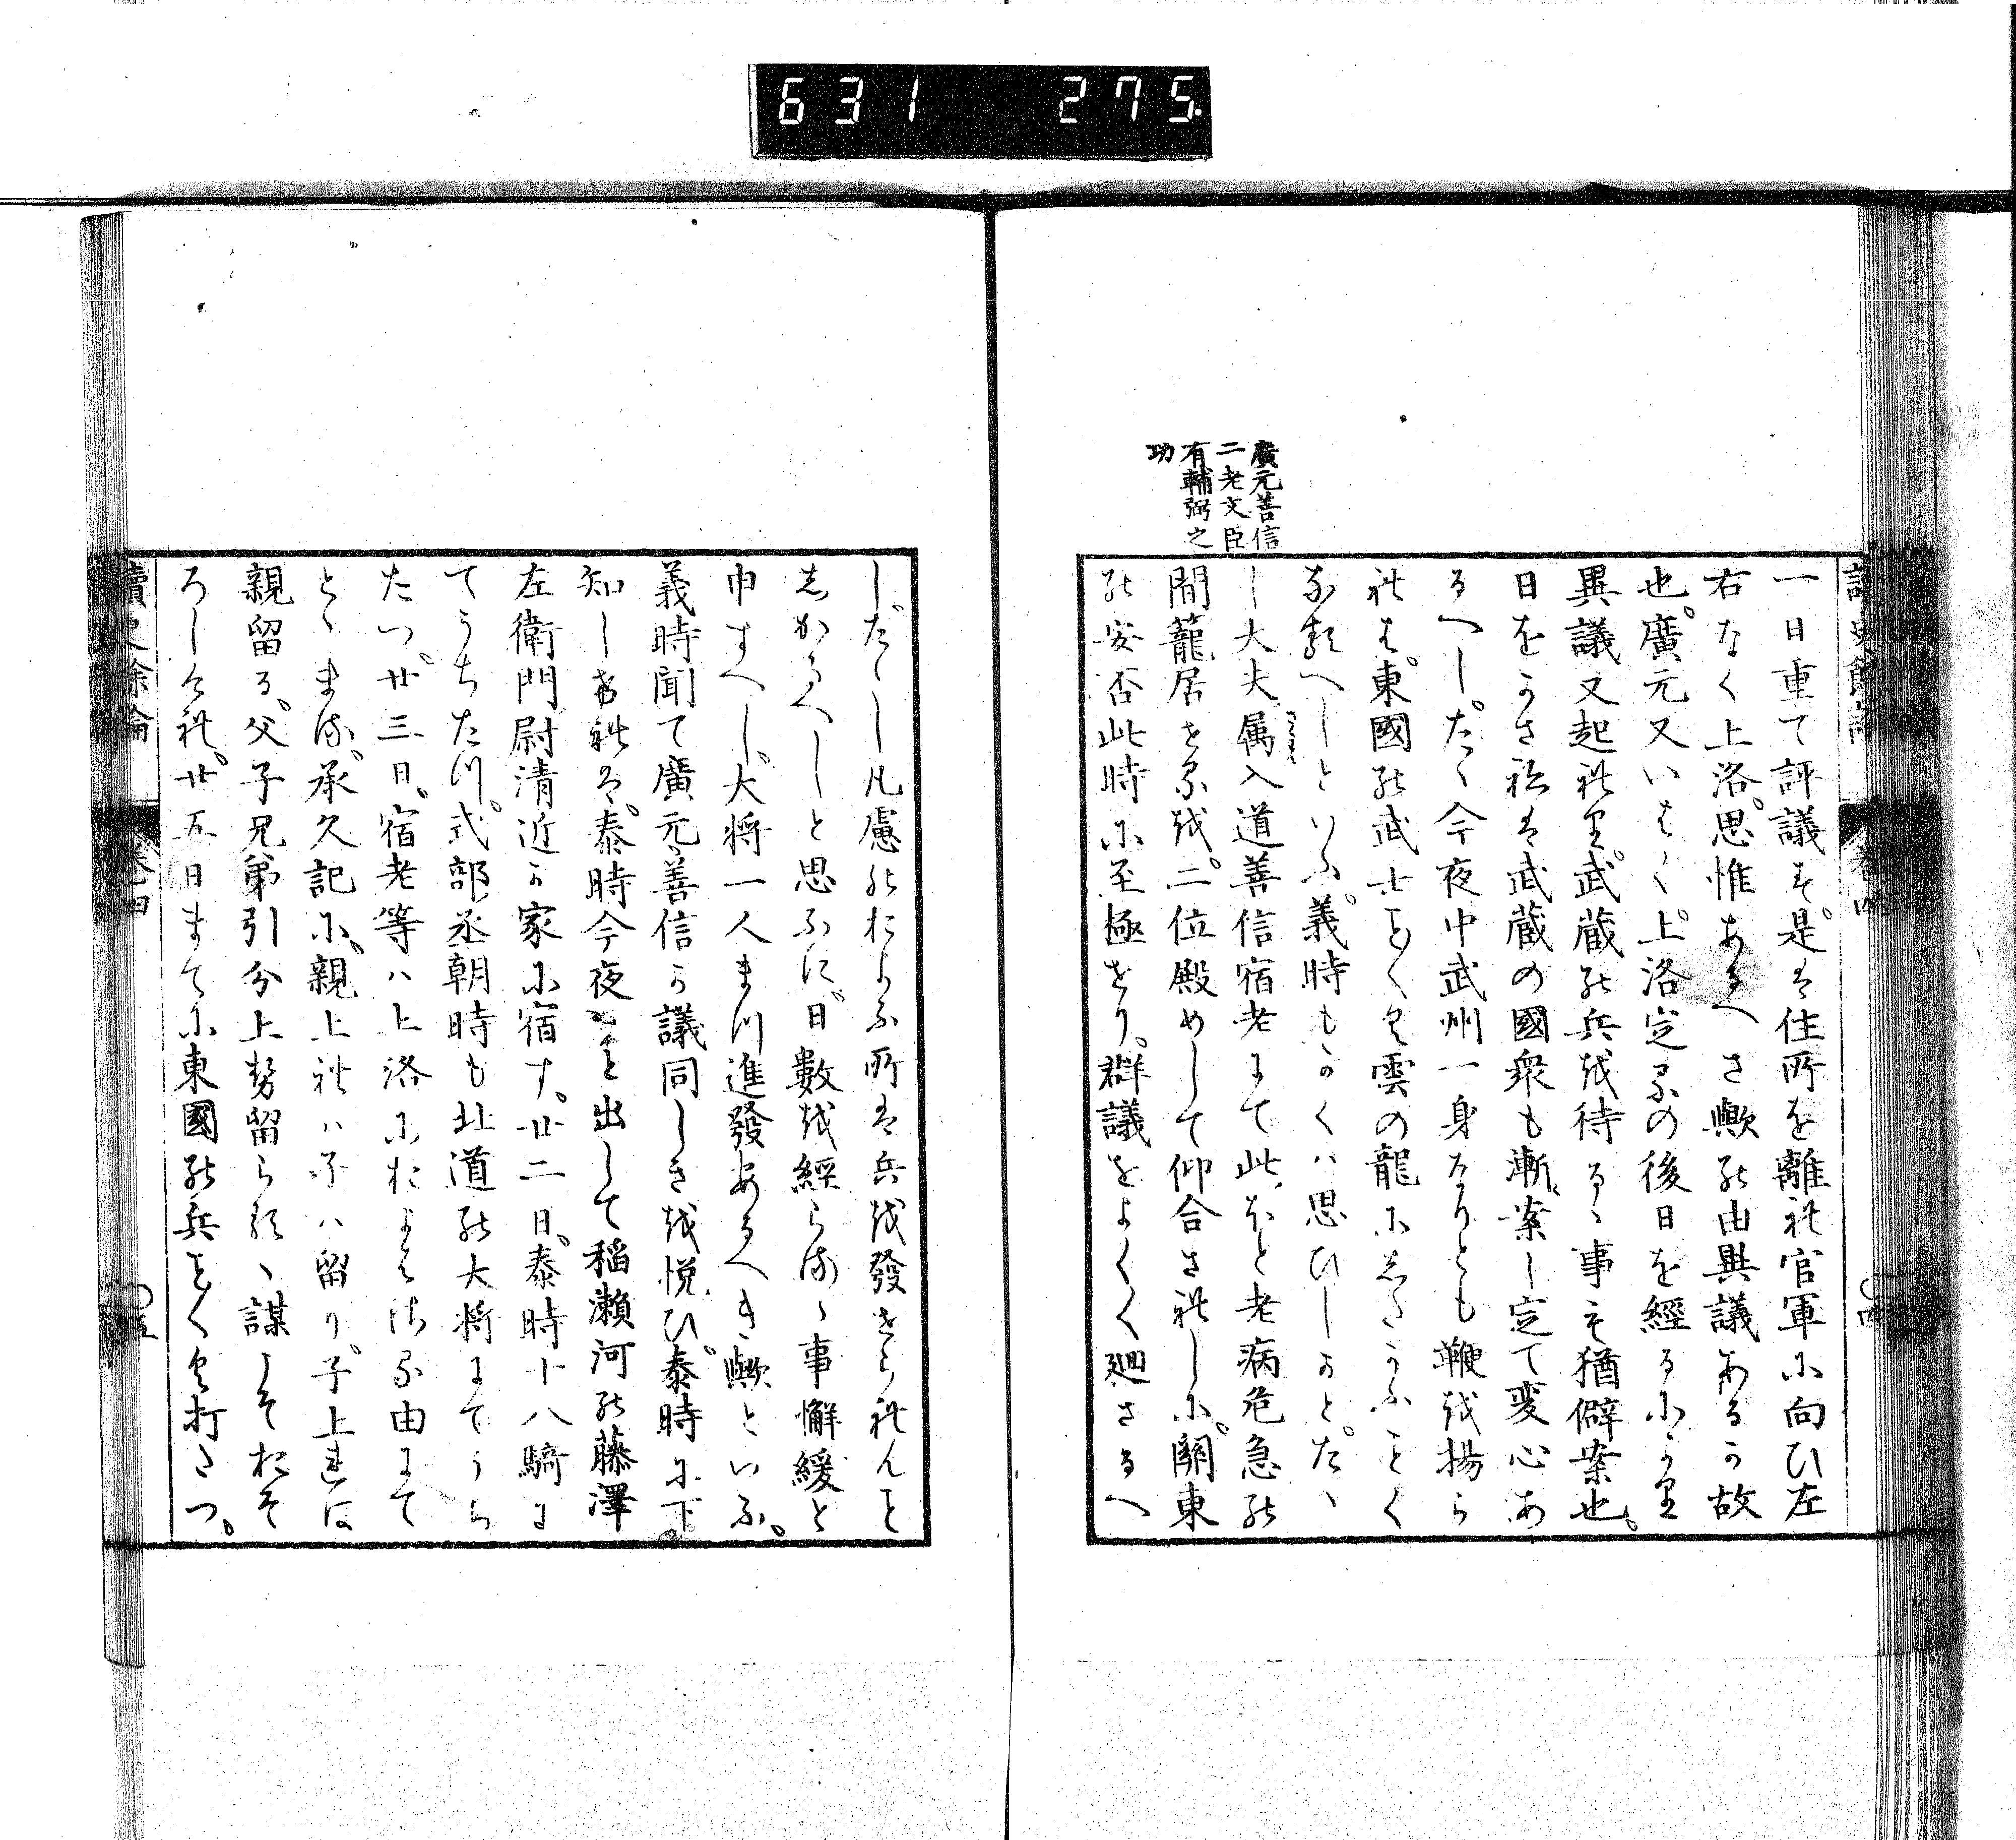 631 275
讀史餘論 卷四 ○四
廣元善信
二老文臣
有輔弼之
功
一日重て評議す。是は住所を離れ官軍に向ひ左
右なく上洛。思惟あるへき歟の由異議あるか故
也。廣元又いはく。上洛定るの後日を經るにより
異議又起れり。武蔵の兵を待るゝ事も猶僻案也。
日をかさねは武蔵の國衆も漸〻案し定て変心あ
るへし。たゝ今夜中武州一身なりとも鞭を揚ら
れは。東國の武士ことく雲の龍にしたかふことく
なるへしといふ。義時もかくハ思ひしかと。たゝ
し大夫属入道善信宿老にて此ほと老病危急の
間籠居せるを。二位殿めして仰合されしに。關東
の安否此時に至極せり。群議をよくく廻さるへ
した〻し凡慮のおよふ所は兵を發せられんと
しかるへしと思ふに。日數を經らるゝ事懈緩と
巾すへし。大将一人まつ進發あるへき歟といふ。
義時聞て廣元善信か議同しきを悦ひ。泰時に下
知しけれは。泰時今夜門出して稲瀬河の藤澤
左衛門尉清近か家に宿す。廿二日。泰時十八騎に
てうちたつ。式部丞朝時も北道の大将にてうち
たつ。廿三日。宿老等ハ上洛におよはさる由にて
とゝまる。承久記に。親上れハ子ハ留り。子上れは
親留る。父子兄弟引分上せ留らるゝ謀しそおそ
ろしけれ。廿五日まてに東國の兵ことく打たつ。
讀史餘論 卷四 ○五